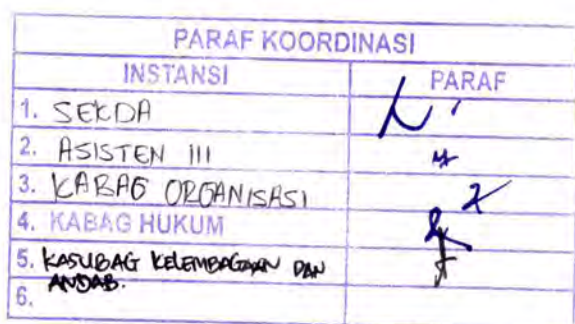 PARAF KOORDINASI
INSTANSI PARAF
1. SEKDA
2. ASISTEN III
3. KABAG ORGANISASI
4. KABAG HUKUM
5. KASUBAG KELEMBAGAAN DAN
ANDAB.
6.